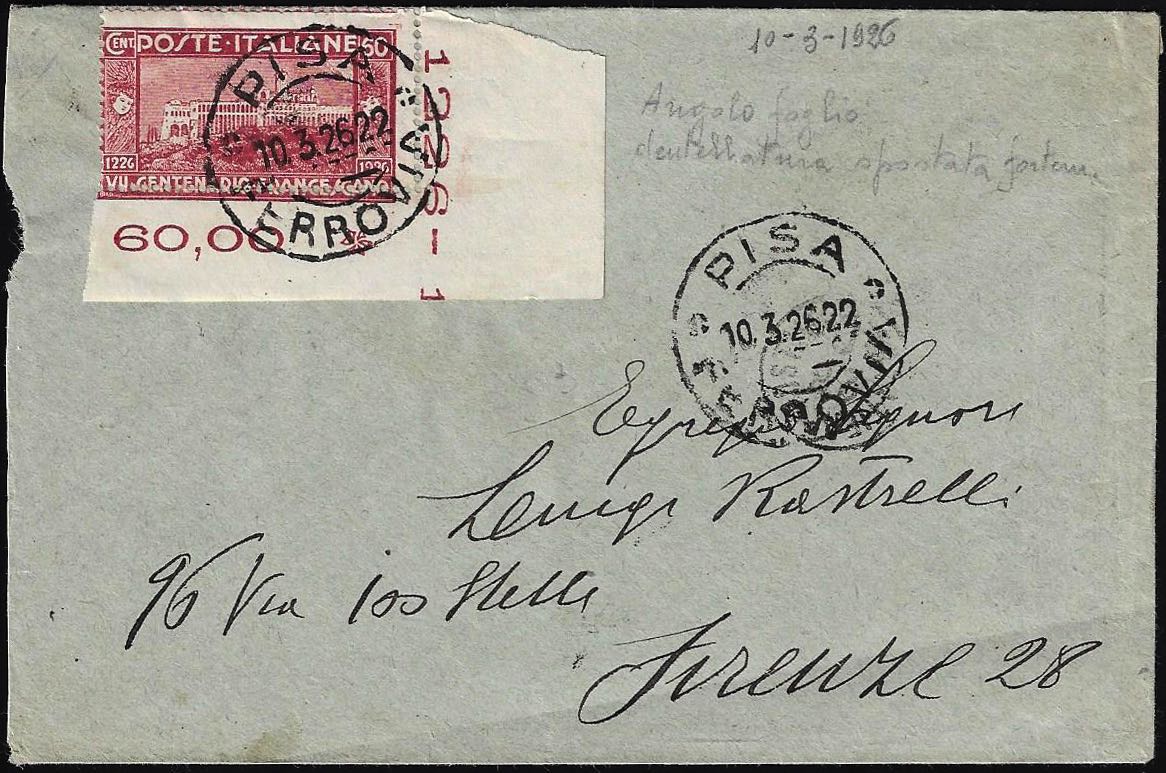 10-3-1926
Angolo foglio
dentellatura spostata fortem.
CENT. POSTE·ITALIANE 60
1226 1926
VII·CENTENARIO·FRANCESCANO
60,00
1226-1
PISA
10.3.26.22
FERROVIA
PISA
10.3.26.22
FERROVIA
Egregio Signore
Luigi Rastrelli
96 Via
Firenze 28